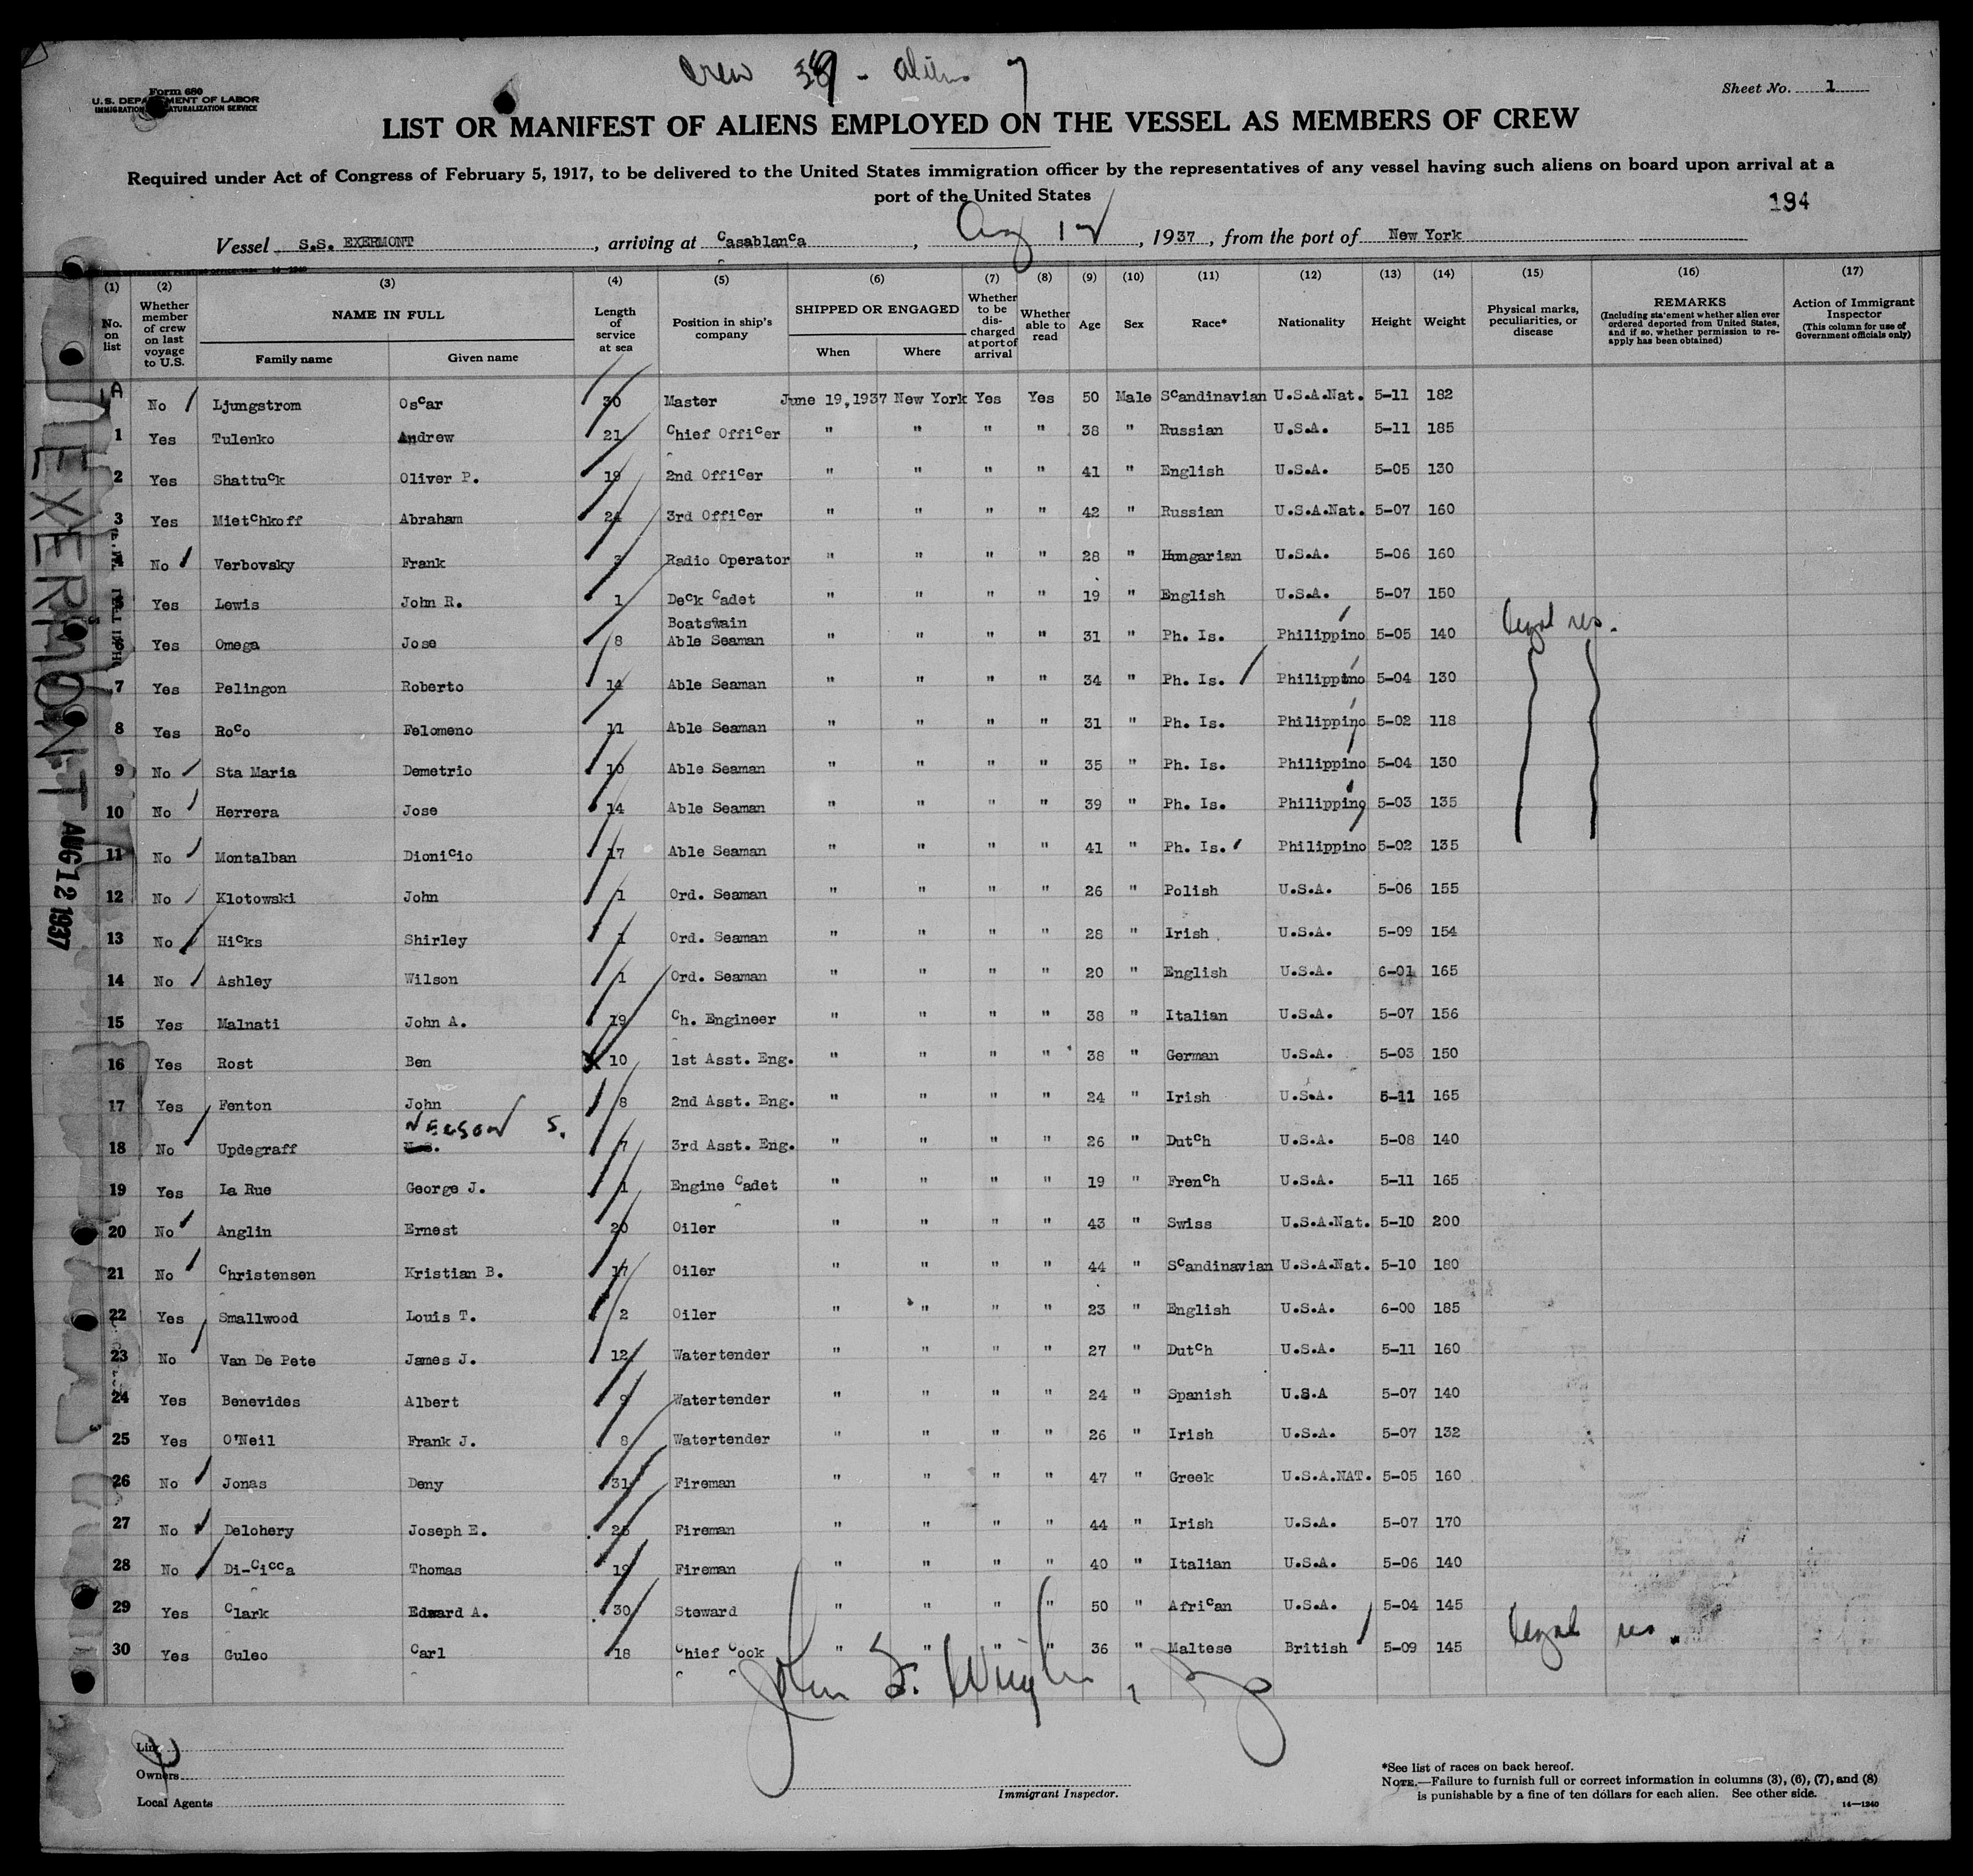 Crew 38 - aliens 7
Form 680
U.S. DEPARTMENT OF LABOR
IMMIGRATION NATURALIZATION SERVICE
Sheet No. 1
LIST OR MANIFEST OF ALIENS EMPLOYED ON THE VESSEL AS MEMBERS OF CREW
Required under Act of Congress of February 5, 1917, to be delivered to the United States immigration officer by the representatives of any vessel having such aliens on board upon arrival at a
port of the United States
194
Vessel S.S. EXERMONT, arriving at Casablanca, Aug 12, 1937, from the port of New York
(1) (2) (3) (4) (5) (6) (7) (8) (9) (10) (11) (12) (13) (14) (15) (16) (17)
No. on list
Whether member of crew on last voyage to U.S.
NAME IN FULL
Family name Given name
Length of service at sea
Position in ship's company
SHIPPED OR ENGAGED
When Where
Whether to be discharged at port of arrival
Whether able to read
Age
Sex
Race*
Nationality
Height
Weight
Physical marks, peculiarities, or disease
REMARKS
(Including statement whether alien ever ordered deported from United States, and if so, whether permission to re-apply has been obtained)
Action of Immigrant Inspector
(This column for use of Government officials only)
1A No Ljungstrom Oscar 30 Master June 19,1937 New York Yes Yes 50 Male Scandinavian U.S.A.Nat. 5-11 182
1 Yes Tulenko Andrew 21 Chief Officer " " " " 38 " Russian U.S.A. 5-11 185
2 Yes Shattuck Oliver P. 19 2nd Officer " " " " 41 " English U.S.A. 5-05 130
3 Yes Mietchkoff Abraham 24 3rd Officer " " " " 42 " Russian U.S.A.Nat. 5-07 160
No Verbovsky Frank 3 Radio Operator " " " " 28 " Hungarian U.S.A. 5-06 160
Yes Lewis John R. 1 Deck Cadet " " " " 19 " English U.S.A. 5-07 150
Yes Omega Jose 8 Boatswain Able Seaman " " " " 31 " Ph. Is. Philippino 5-05 140 legal res.
7 Yes Pelingon Roberto 14 Able Seaman " " " " 34 " Ph. Is. Philippino 5-04 130
8 Yes Roco Felomeno 11 Able Seaman " " " " 31 " Ph. Is. Philippino 5-02 118
9 No Sta Maria Demetrio 10 Able Seaman " " " " 35 " Ph. Is. Philippino 5-04 130
10 No Herrera Jose 14 Able Seaman " " " " 39 " Ph. Is. Philippino 5-03 135
11 No Montalban Dionicio 17 Able Seaman " " " " 41 " Ph. Is. Philippino 5-02 135
12 No Klotowski John 1 Ord. Seaman " " " " 26 " Polish U.S.A. 5-06 155
13 No Hicks Shirley 1 Ord. Seaman " " " " 28 " Irish U.S.A. 5-09 154
14 No Ashley Wilson 1 Ord. Seaman " " " " 20 " English U.S.A. 6-01 165
15 Yes Malnati John A. 19 Ch. Engineer " " " " 38 " Italian U.S.A. 5-07 156
16 Yes Rost Ben 10 1st Asst. Eng. " " " " 38 " German U.S.A. 5-03 150
17 Yes Fenton John 8 2nd Asst. Eng. " " " " 24 " Irish U.S.A. 5-11 165
NELSON S.
18 No Updegraff 7 3rd Asst. Eng. " " " " 26 " Dutch U.S.A. 5-08 140
19 Yes La Rue George J. 1 Engine Cadet " " " " 19 " French U.S.A. 5-11 165
20 No Anglin Ernest 20 Oiler " " " " 43 " Swiss U.S.A.Nat. 5-10 200
21 No Christensen Kristian B. 17 Oiler " " " " 44 " Scandinavian U.S.A.Nat. 5-10 180
22 Yes Smallwood Louis T. 2 Oiler " " " " 23 " English U.S.A. 6-00 185
23 No Van De Pete James J. 12 Watertender " " " " 27 " Dutch U.S.A. 5-11 160
24 Yes Benevides Albert 9 Watertender " " " " 24 " Spanish U.S.A 5-07 140
25 Yes O'Neil Frank J. 8 Watertender " " " " 26 " Irish U.S.A. 5-07 132
26 No Jonas Deny 31 Fireman " " " " 47 " Greek U.S.A.NAT. 5-05 160
27 No Delohery Joseph E. Fireman " " " " 44 " Irish U.S.A. 5-07 170
28 No Di-Cicca Thomas 19 Fireman " " " " 40 " Italian U.S.A. 5-06 140
29 Yes Clark Edward A. 30 Steward " " " " 50 " African U.S.A. 5-04 145
30 Yes Guleo Carl 18 Chief Cook " " " " 36 " Maltese British 5-09 145 legal res.
EXERMONT AUG 12 1937
John S. Wright
Line
Owners
Local Agents
Immigrant Inspector.
*See list of races on back hereof.
NOTE.—Failure to furnish full or correct information in columns (3), (6), (7), and (8)
is punishable by a fine of ten dollars for each alien. See other side.
14—1240